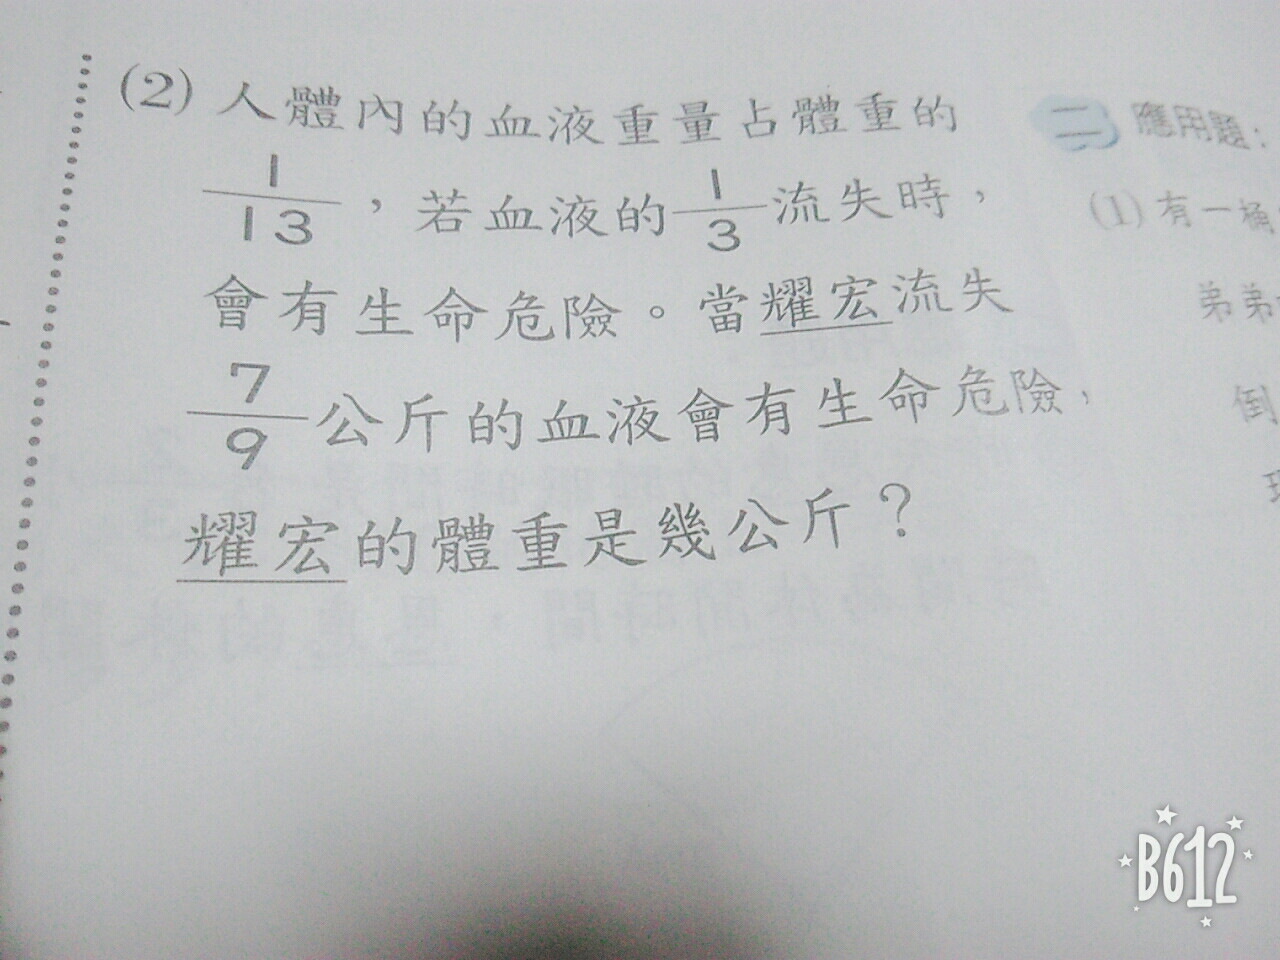 (2) 人體內的血液重量占體重的
1/13，若血液的1/3流失時，
會有生命危險。當耀宏流失
7/9公斤的血液會有生命危險，
耀宏的體重是幾公斤？
二 應用題：
(1) 有一桶
弟弟
倒
B612